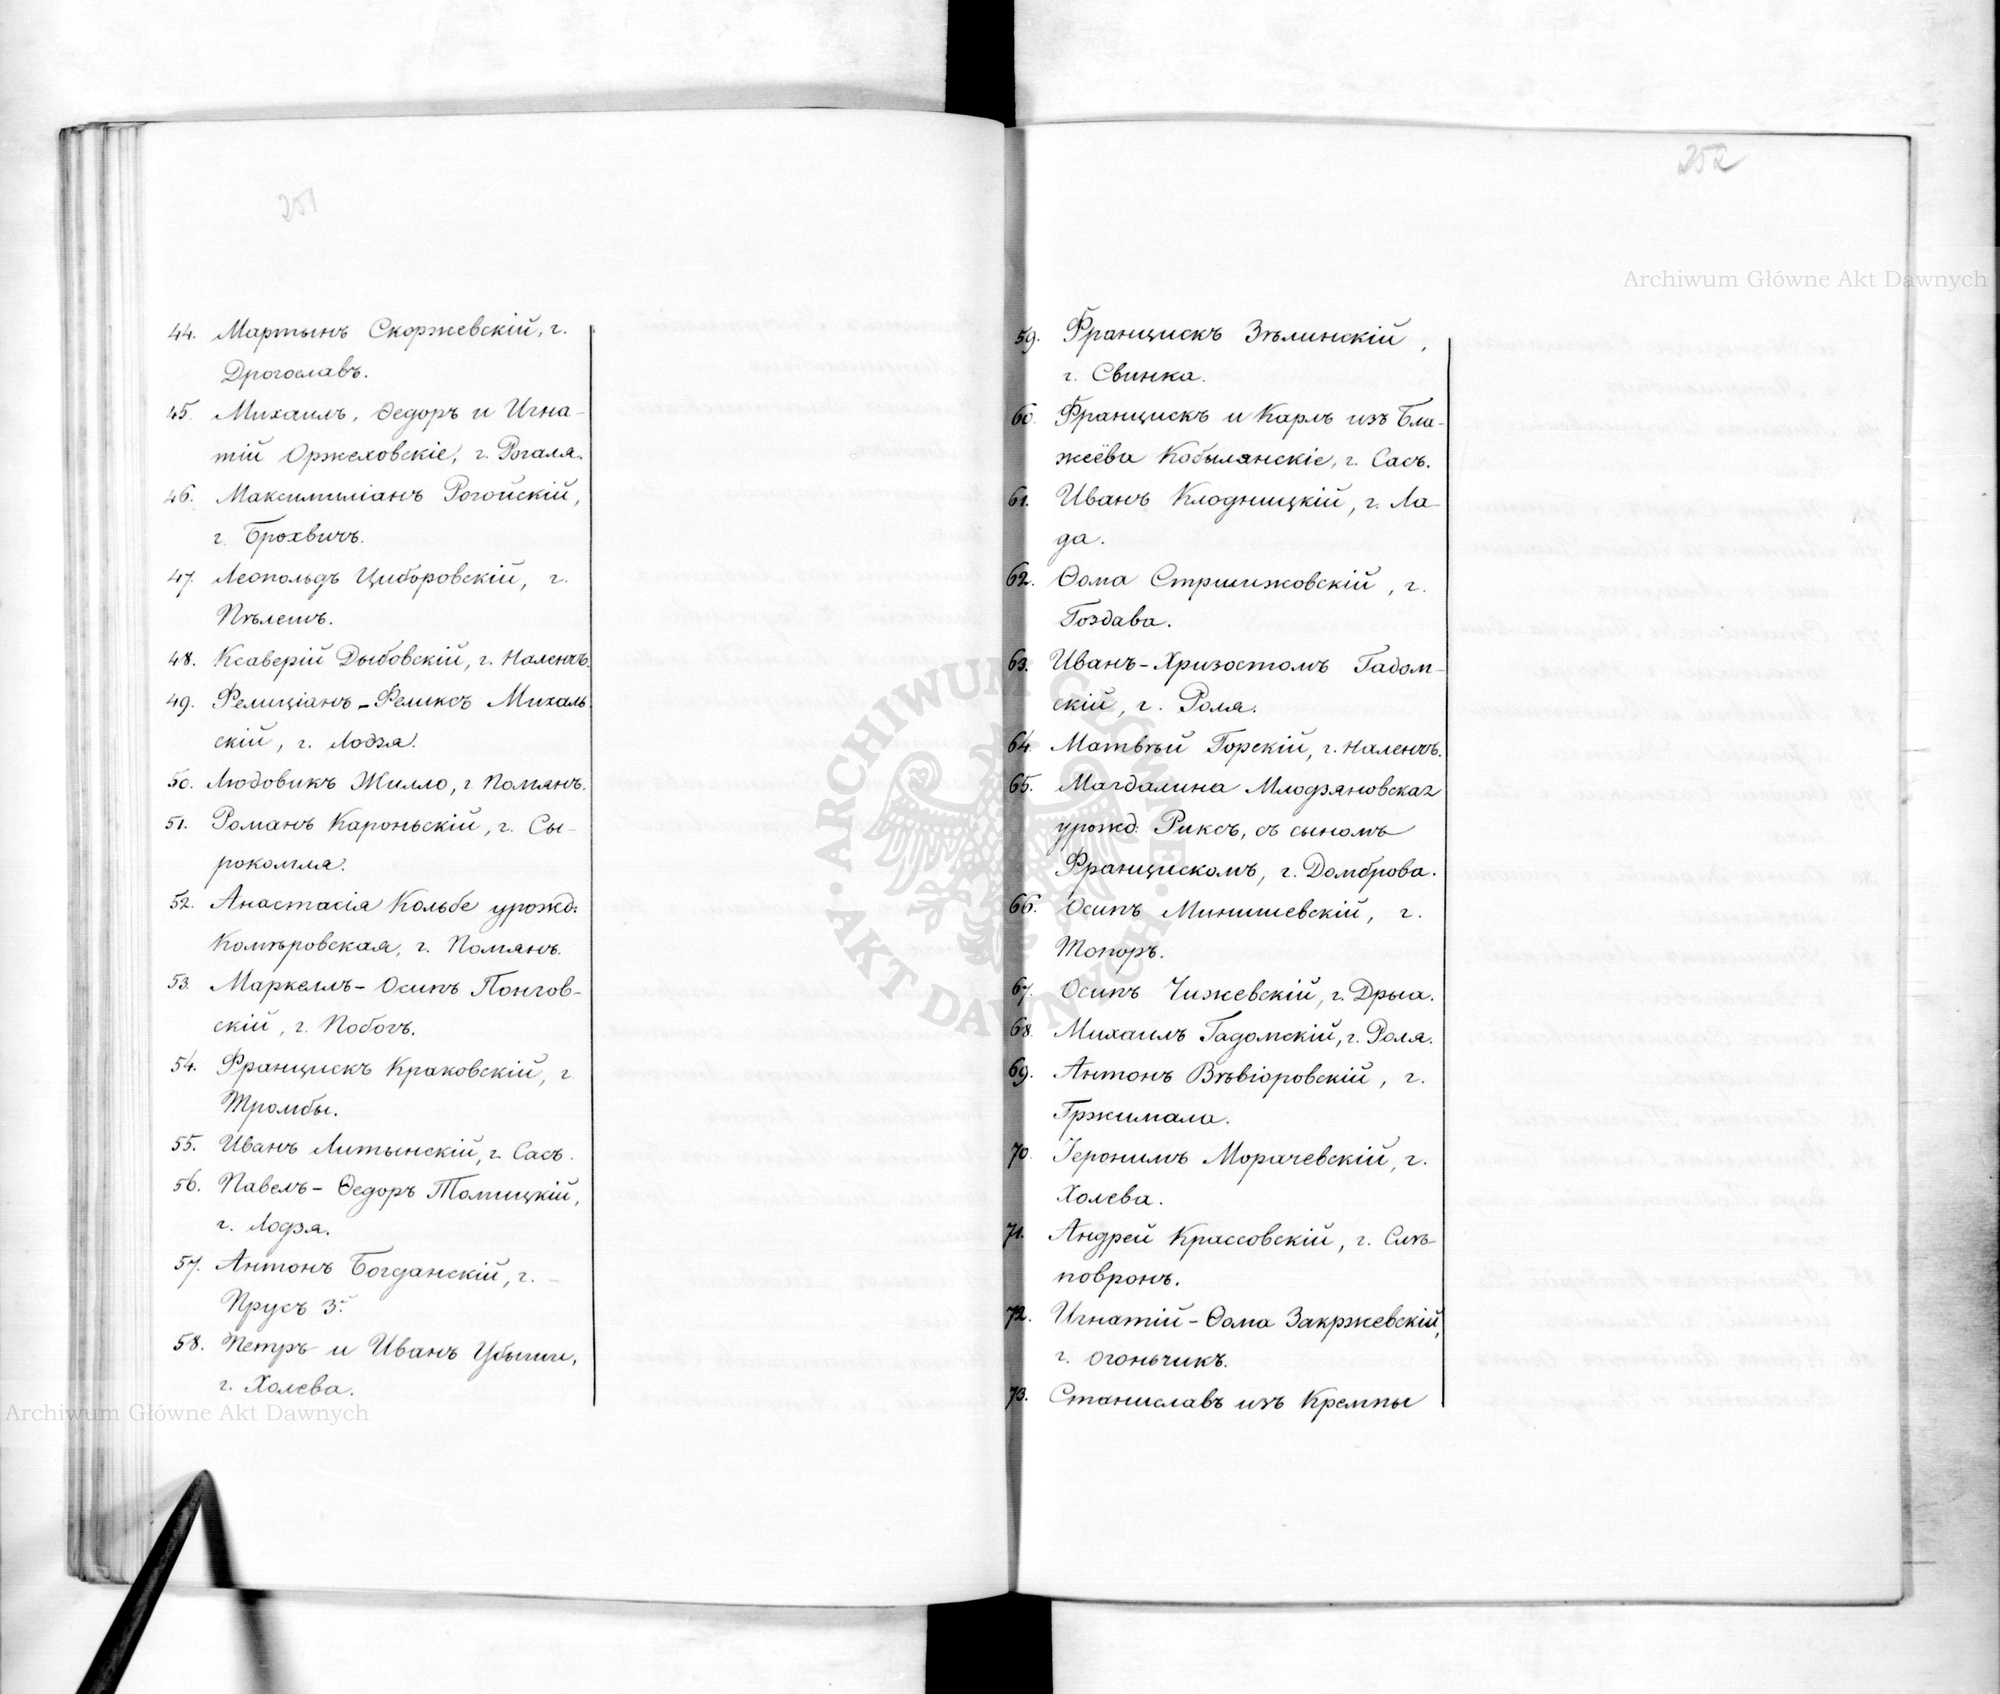 251
44. Мартынъ Скоржевскій, г.
Дрогославъ.
45. Михаилъ, Ѳедоръ и Игна-
тій Оржеховскіе, г. Рогаля.
46. Максимиліанъ Рогойскій,
г. Брохвичъ.
47. Леопольдъ Циборовскій, г.
Пѣлешъ.
48. Ксаверій Дыбовскій, г. Наленчъ.
49. Фелиціанъ-Феликсъ Михаль
скій, г. Лодзя.
50. Людовикъ Жилло, г. Помянъ.
51. Романъ Кароньскій, г. Сы-
рокомля.
52. Анастасія Кольбе урожд.
Комѣровская, г. Помянъ.
53. Маркеллъ-Осипъ Понгов-
скій, г. Побогъ.
54. Францискъ Краковскій, г.
Тромбы.
55. Иванъ Литынскій, г. Сасъ.
56. Павелъ-Ѳедоръ Томицкій,
г. Лодзя.
57. Антонъ Богданскій, г. -
Прусъ 3.
58. Петръ и Иванъ Убыши,
г. Холева.
Archiwum Główne Akt Dawnych
252
Archiwum Główne Akt Dawnych
59. Францискъ Зѣлинскій,
г. Свинка.
60. Францискъ и Карлъ изъ Бла-
жеёва Кобылянскіе, г. Сасъ.
61. Иванъ Клодницкій, г. Ла-
да.
62. Ѳома Стршижовскій, г.
Гоздава.
63. Иванъ-Хризостомъ Гадом-
скій, г. Роля.
64. Матвѣй Горскій, г. Наленчъ.
65. Магдалина Млодзяновская
урожд. Риксъ, съ сыномъ
Францискомъ, г. Домброва.
66. Осипъ Минишевскій, г.
Топоръ.
67. Осипъ Чижевскій, г. Дрыа.
68. Михаилъ Гадомскій, г. Роля.
69. Антонъ Вѣвіоровскій, г.
Гржимала.
70. Іеронимъ Морачевскій, г.
Холева.
71. Андрей Крассовскій, г. Слѣ-
повронъ.
72. Игнатій-Ѳома Закржевскій,
г. Огоньчикъ.
73. Станиславъ изъ Кремпы
ARCHIWUM GŁÓWNE
AKT DAWNYCH